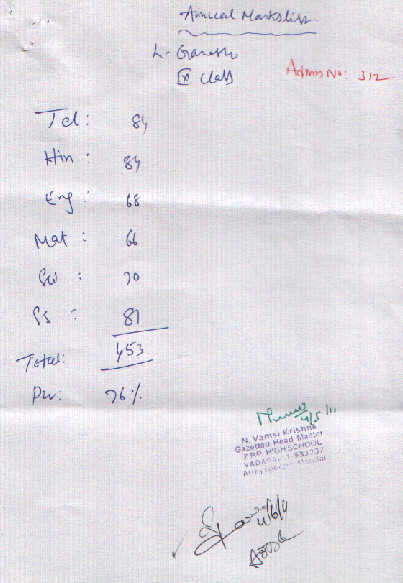 Annual Markslist
L. Ganesh
IX Class
Admn No: 312
Tel: 84
Hin: 84
Eng: 68
Mat: 66
Sci: 70
SS: 81
Total: 453
Per: 76%
4/5/11
N. Vamsi Krishna
Gazetted Head Master
HIGH SCHOOL
4/6/11